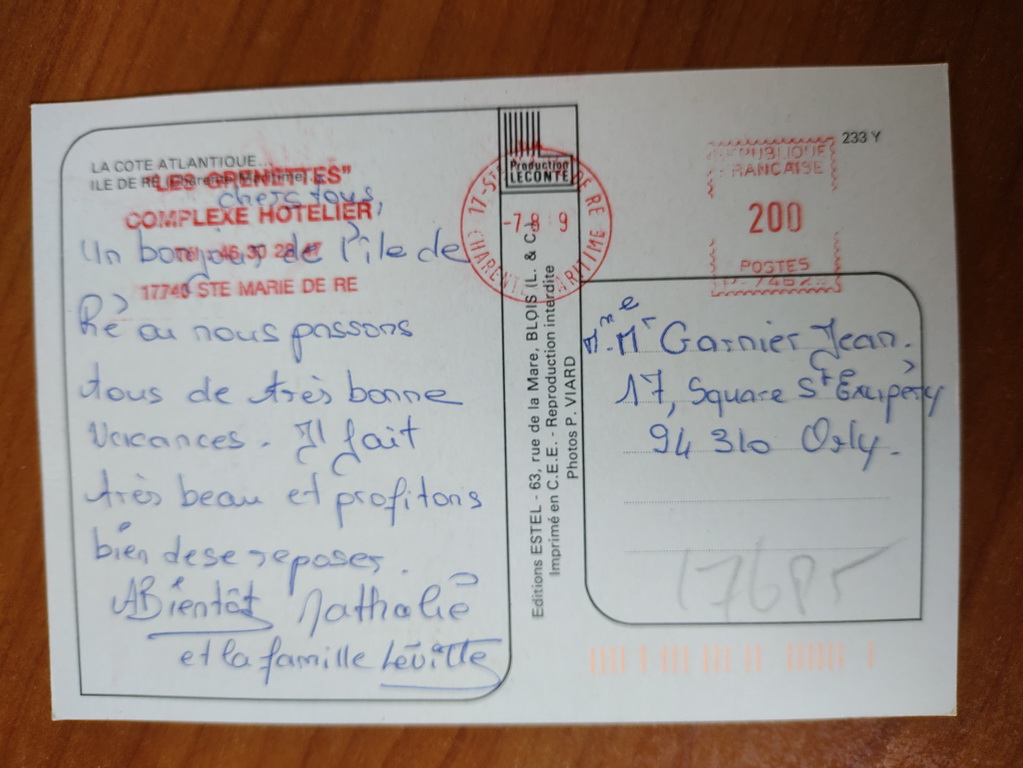 LA COTE ATLANTIQUE...
ILE DE RE
"LES GRENETTES"
COMPLEXE HOTELIER
Tél. 46.30 22 47
17740 STE MARIE DE RE
chers tous,
Un bonjour de l'île de
Ré ou nous passons
tous de très bonne
vacances. Il fait
très beau et profitons
bien de se reposer.
A Bientôt Nathalie
et la famille Levitte
Production
LECONTE
Editions ESTEL - 63, rue de la Mare, BLOIS (L. & C.)
Imprimé en C.E.E. - Reproduction interdite
Photos P. VIARD
17-STE DE RE
-7 8 9
CHARENTE MARITIME
233 Y
REPUBLIQUE
FRANCAISE
200
POSTES
Mme Mr Garnier Jean.
17, Square St Exupéry
94 310 Orly.